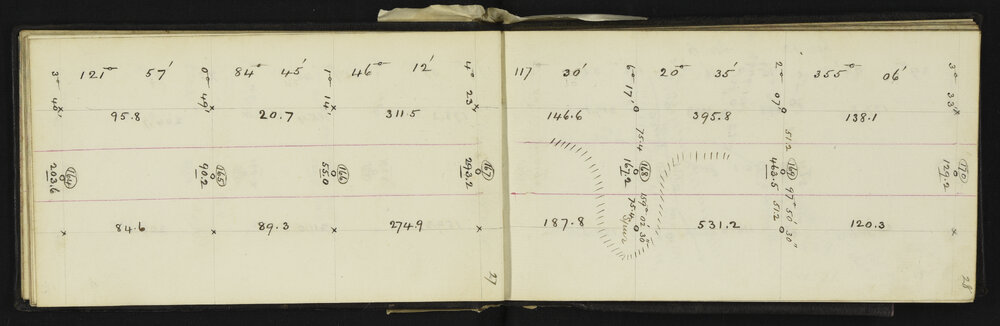 3° 40'
121° 57'
0° 49'
84° 45'
1° 14'
46° 12'
4° 23'
95.8
20.7
311.5
164
203.6
165
90.2
166
55.0
167
293.2
84.6
89.3
274.9
27
117 30'
6° 17'
20° 35'
2° 07'
355° 06'
3° 33'
146.6
395.8
138.1
75.4
168
167.2
159° 02' 30"
75.4
Spur
51.2
169
463.5
97° 50' 30"
51.2
170
129.2
187.8
531.2
120.3
28